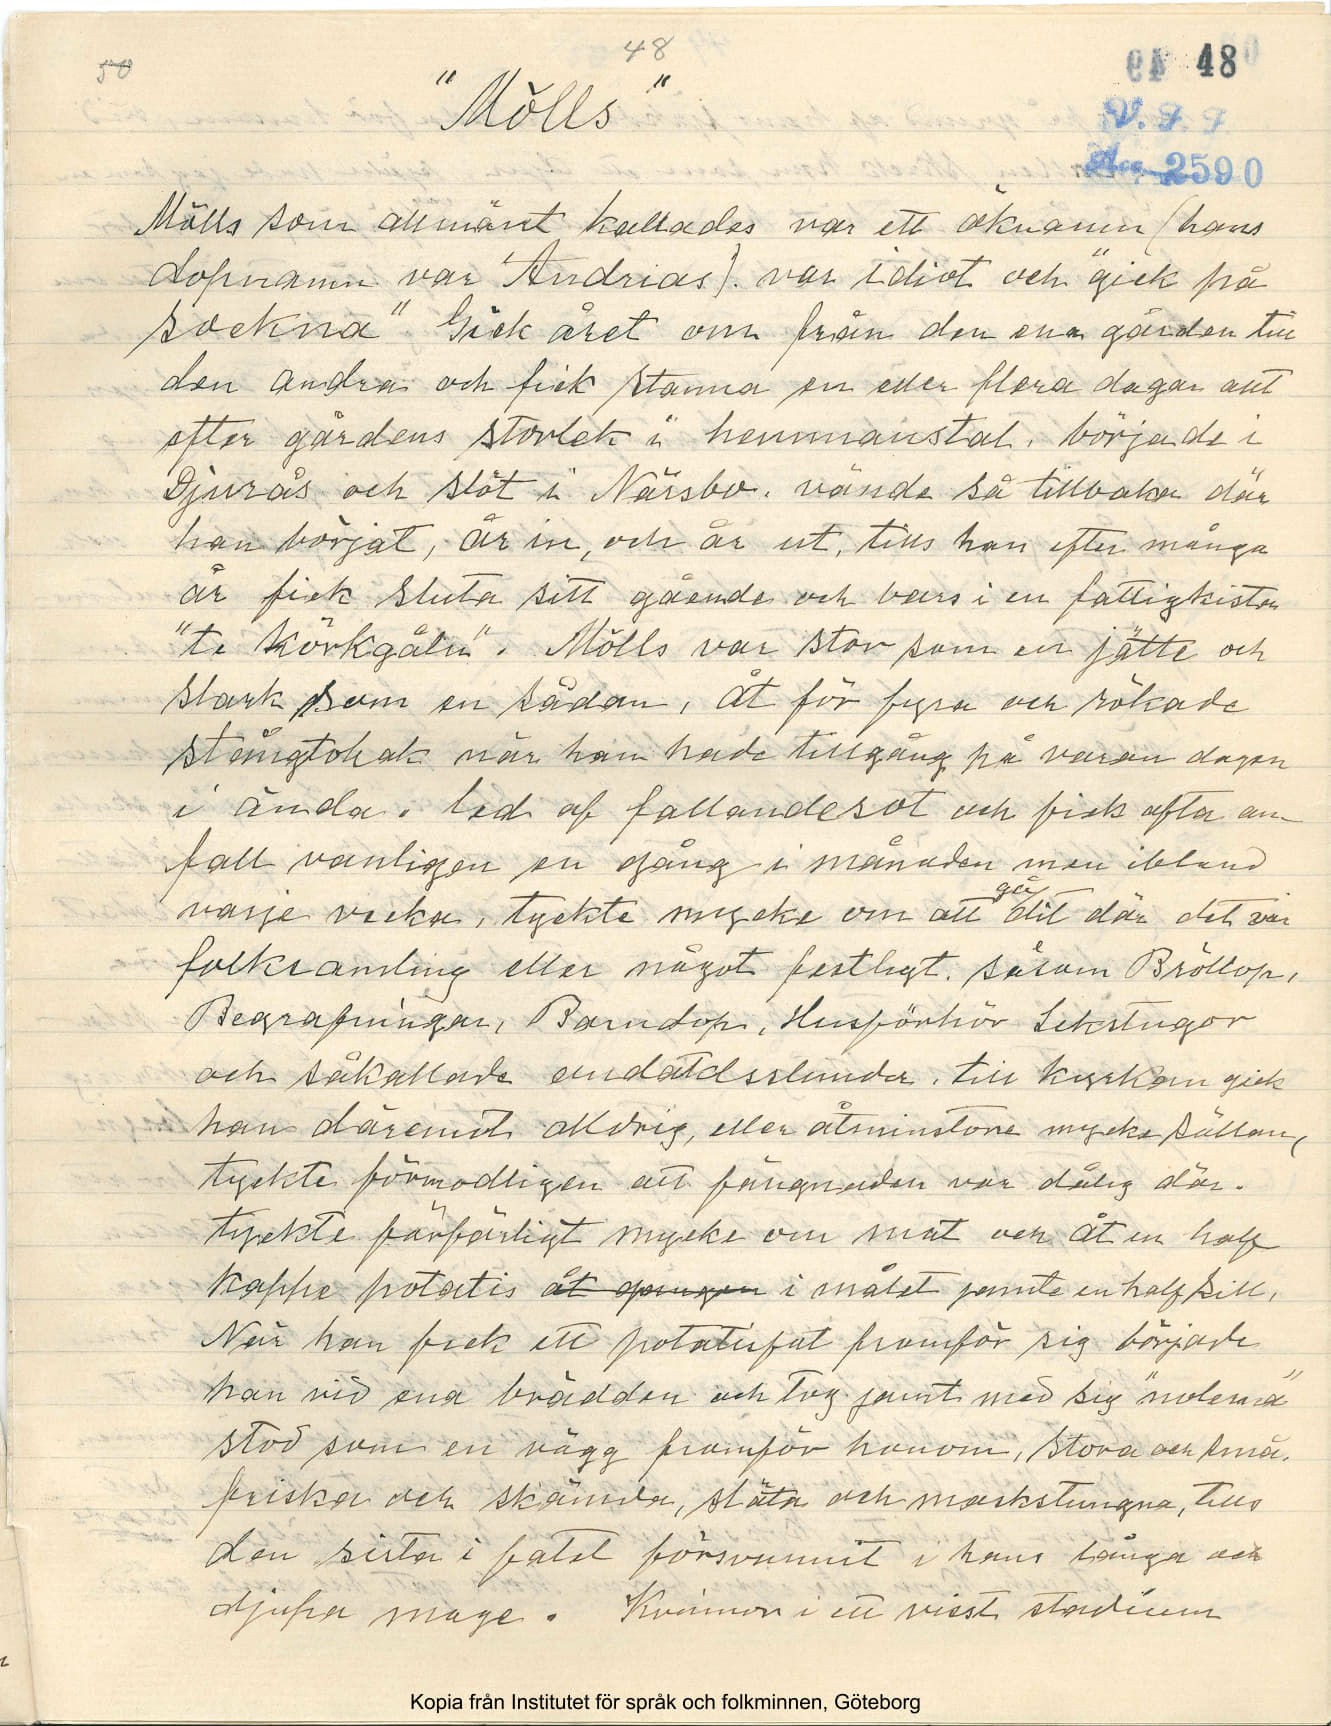 50
48
48
"Mölls"
V. F. F
Acc. 2590
Mölls som allmänt kallades var ett öknamn (hans
dopnamn var "Andrias). var idiot och "gick på
sockna" Gick året om från den ena gården till
den andra och fick stanna en eller flera dagar allt
efter gårdens storlek i hemmanstal. började i
Djurås och slöt i Näsbo. vände så tillbaka där
han börjat, år in, och år ut, tills han efter många
år fick sluta sitt gående och bars i en fattigkista
"te körkgåln". Mölls var stor som en jätte och
stark som en sådan, åt för fyra och rökade
stångtobak när han hade tillgång på varan dagen
i ända. led af fallandesot och fick ofta an-
fall vanligen en gång i månaden men ibland
varje vecka, tyckte mycke om att gå dit där det var
folksamling eller något festligt. såsom Bröllop,
Begrafningar, Barndop, Husförhör Lekstugor
och såkallade andaktsstunder. till kyrkan gick
han däremot aldrig, eller åtminstone mycke sällan,
tyckte förmodligen att fängnaden var dålig där.
tyckte förfärligt mycke om mat och åt en half
kappe potatis åt gången i målet jamte en half sill,
När han fick ett potatisfat framför sig började
han vid ena brädden och tog jamt med sig
stod som en vägg framför honom, stora och små.
friska och skämda, släta och maskstungna, tills
den sista i fatet försvunnit i hans långa och
djupa mage. Kvinnor i ett visst stadium
Kopia från Institutet för språk och folkminnen, Göteborg